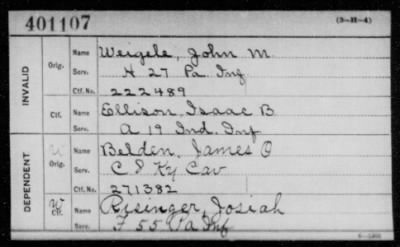 401107 (3-H-4)
INVALID
Orig. Name Weigele, John M.
Serv. H 27 Pa Inf
Ctf. No. 222489
Ctf. Name Ellison, Isaac B
Serv. A 19 Ind. Inf
DEPENDENT
W Orig. Name Belden, James O
Serv. C 8 Ky Cav
Ctf. No. 271382
W Ctf. Name Risinger, Josiah
Serv. F 55 Pa Inf